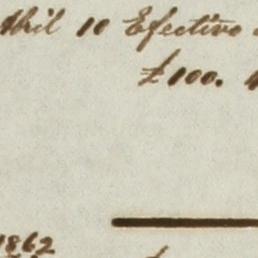 Abril 10 Efectivo
£100.
1862